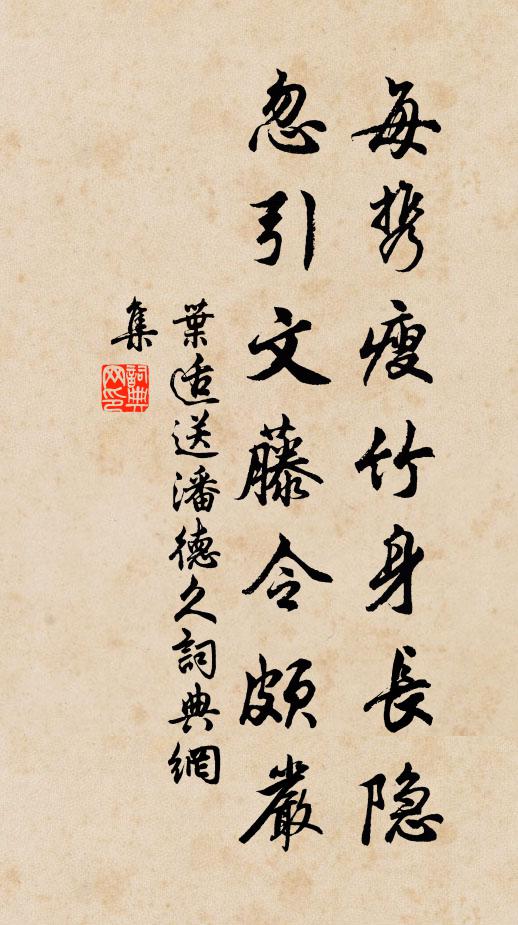 每携瘦竹身長隐
忽引文藤令頗嚴
葉适送潘德久詞典網
集
詞典
网印